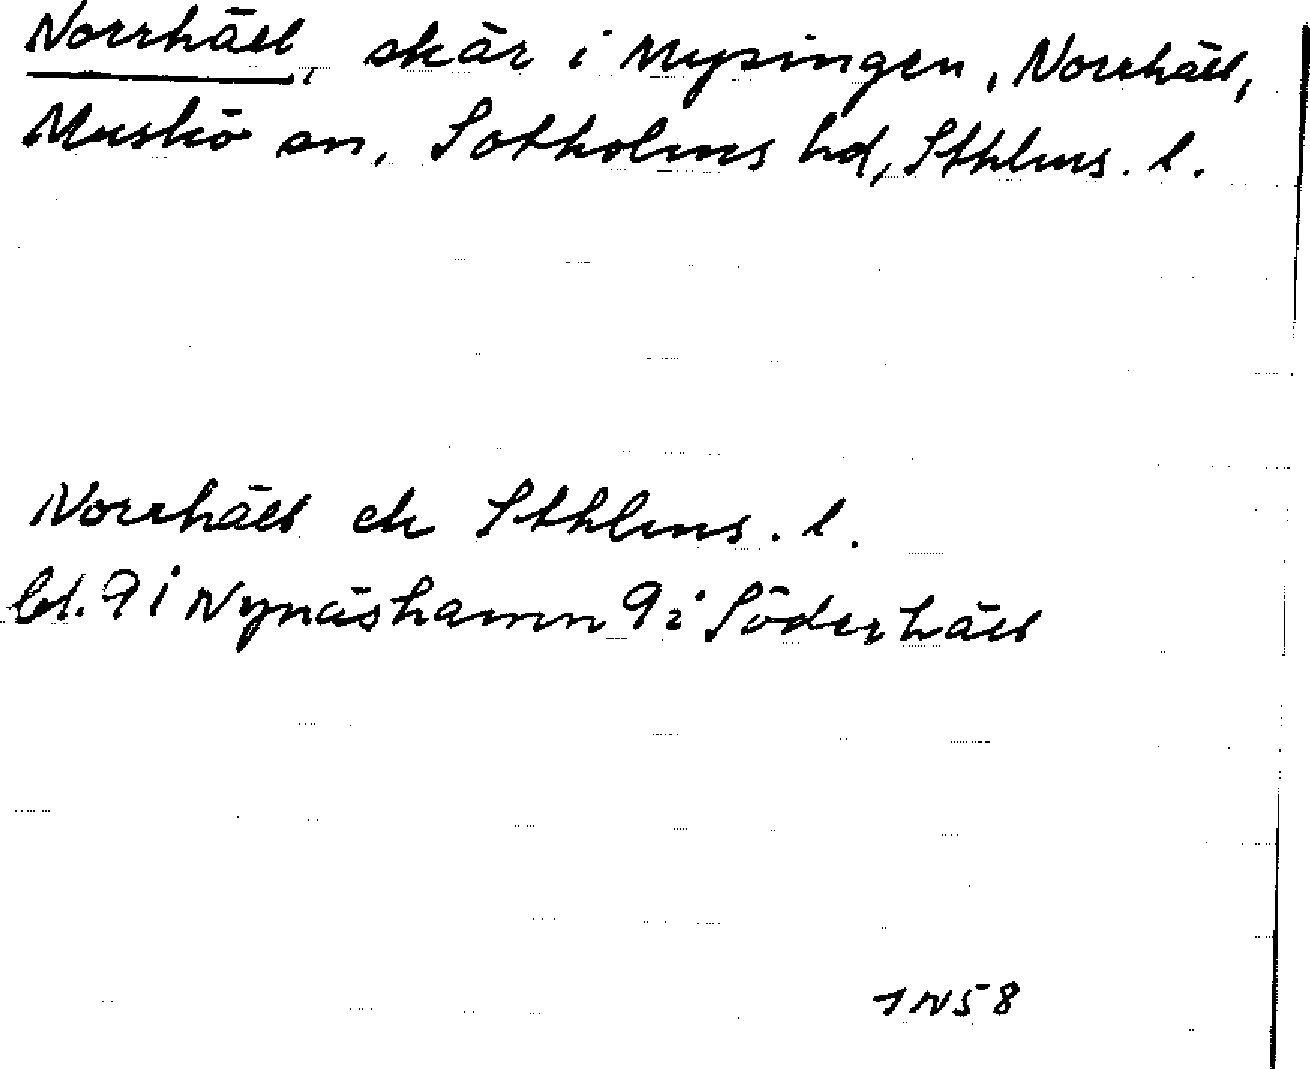 Norrhäll, skär i Mysingen, Norrhäll,
Muskö sn, Sotholms hd, Sthlms. l.
Norrhäll ek Sthlms. l.
bl. 9 i Nynäshamn 9 i Söderhäll
1N58